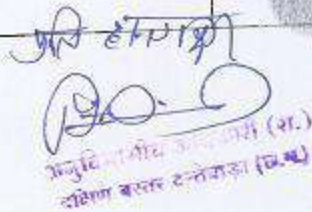 प्रति हस्ताक्षरी
अनुविभागीय अधिकारी (रा.)
दक्षिण बस्तर दन्तेवाड़ा (छ.ग.)